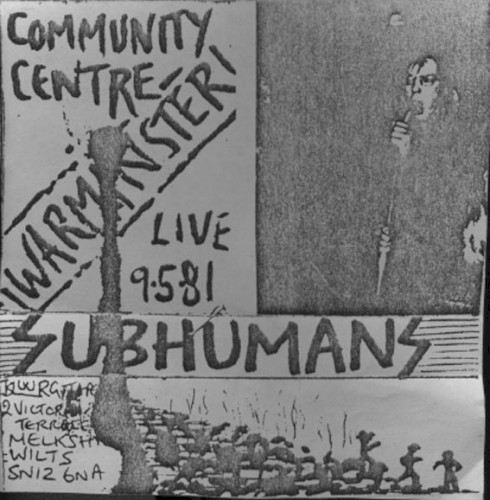 COMMUNITY
CENTRE
WARMINSTER!
LIVE
9.5.81
SUBHUMANS
2 VICTOR
TERRACE
MELKSH
WILTS
SN12 6NA